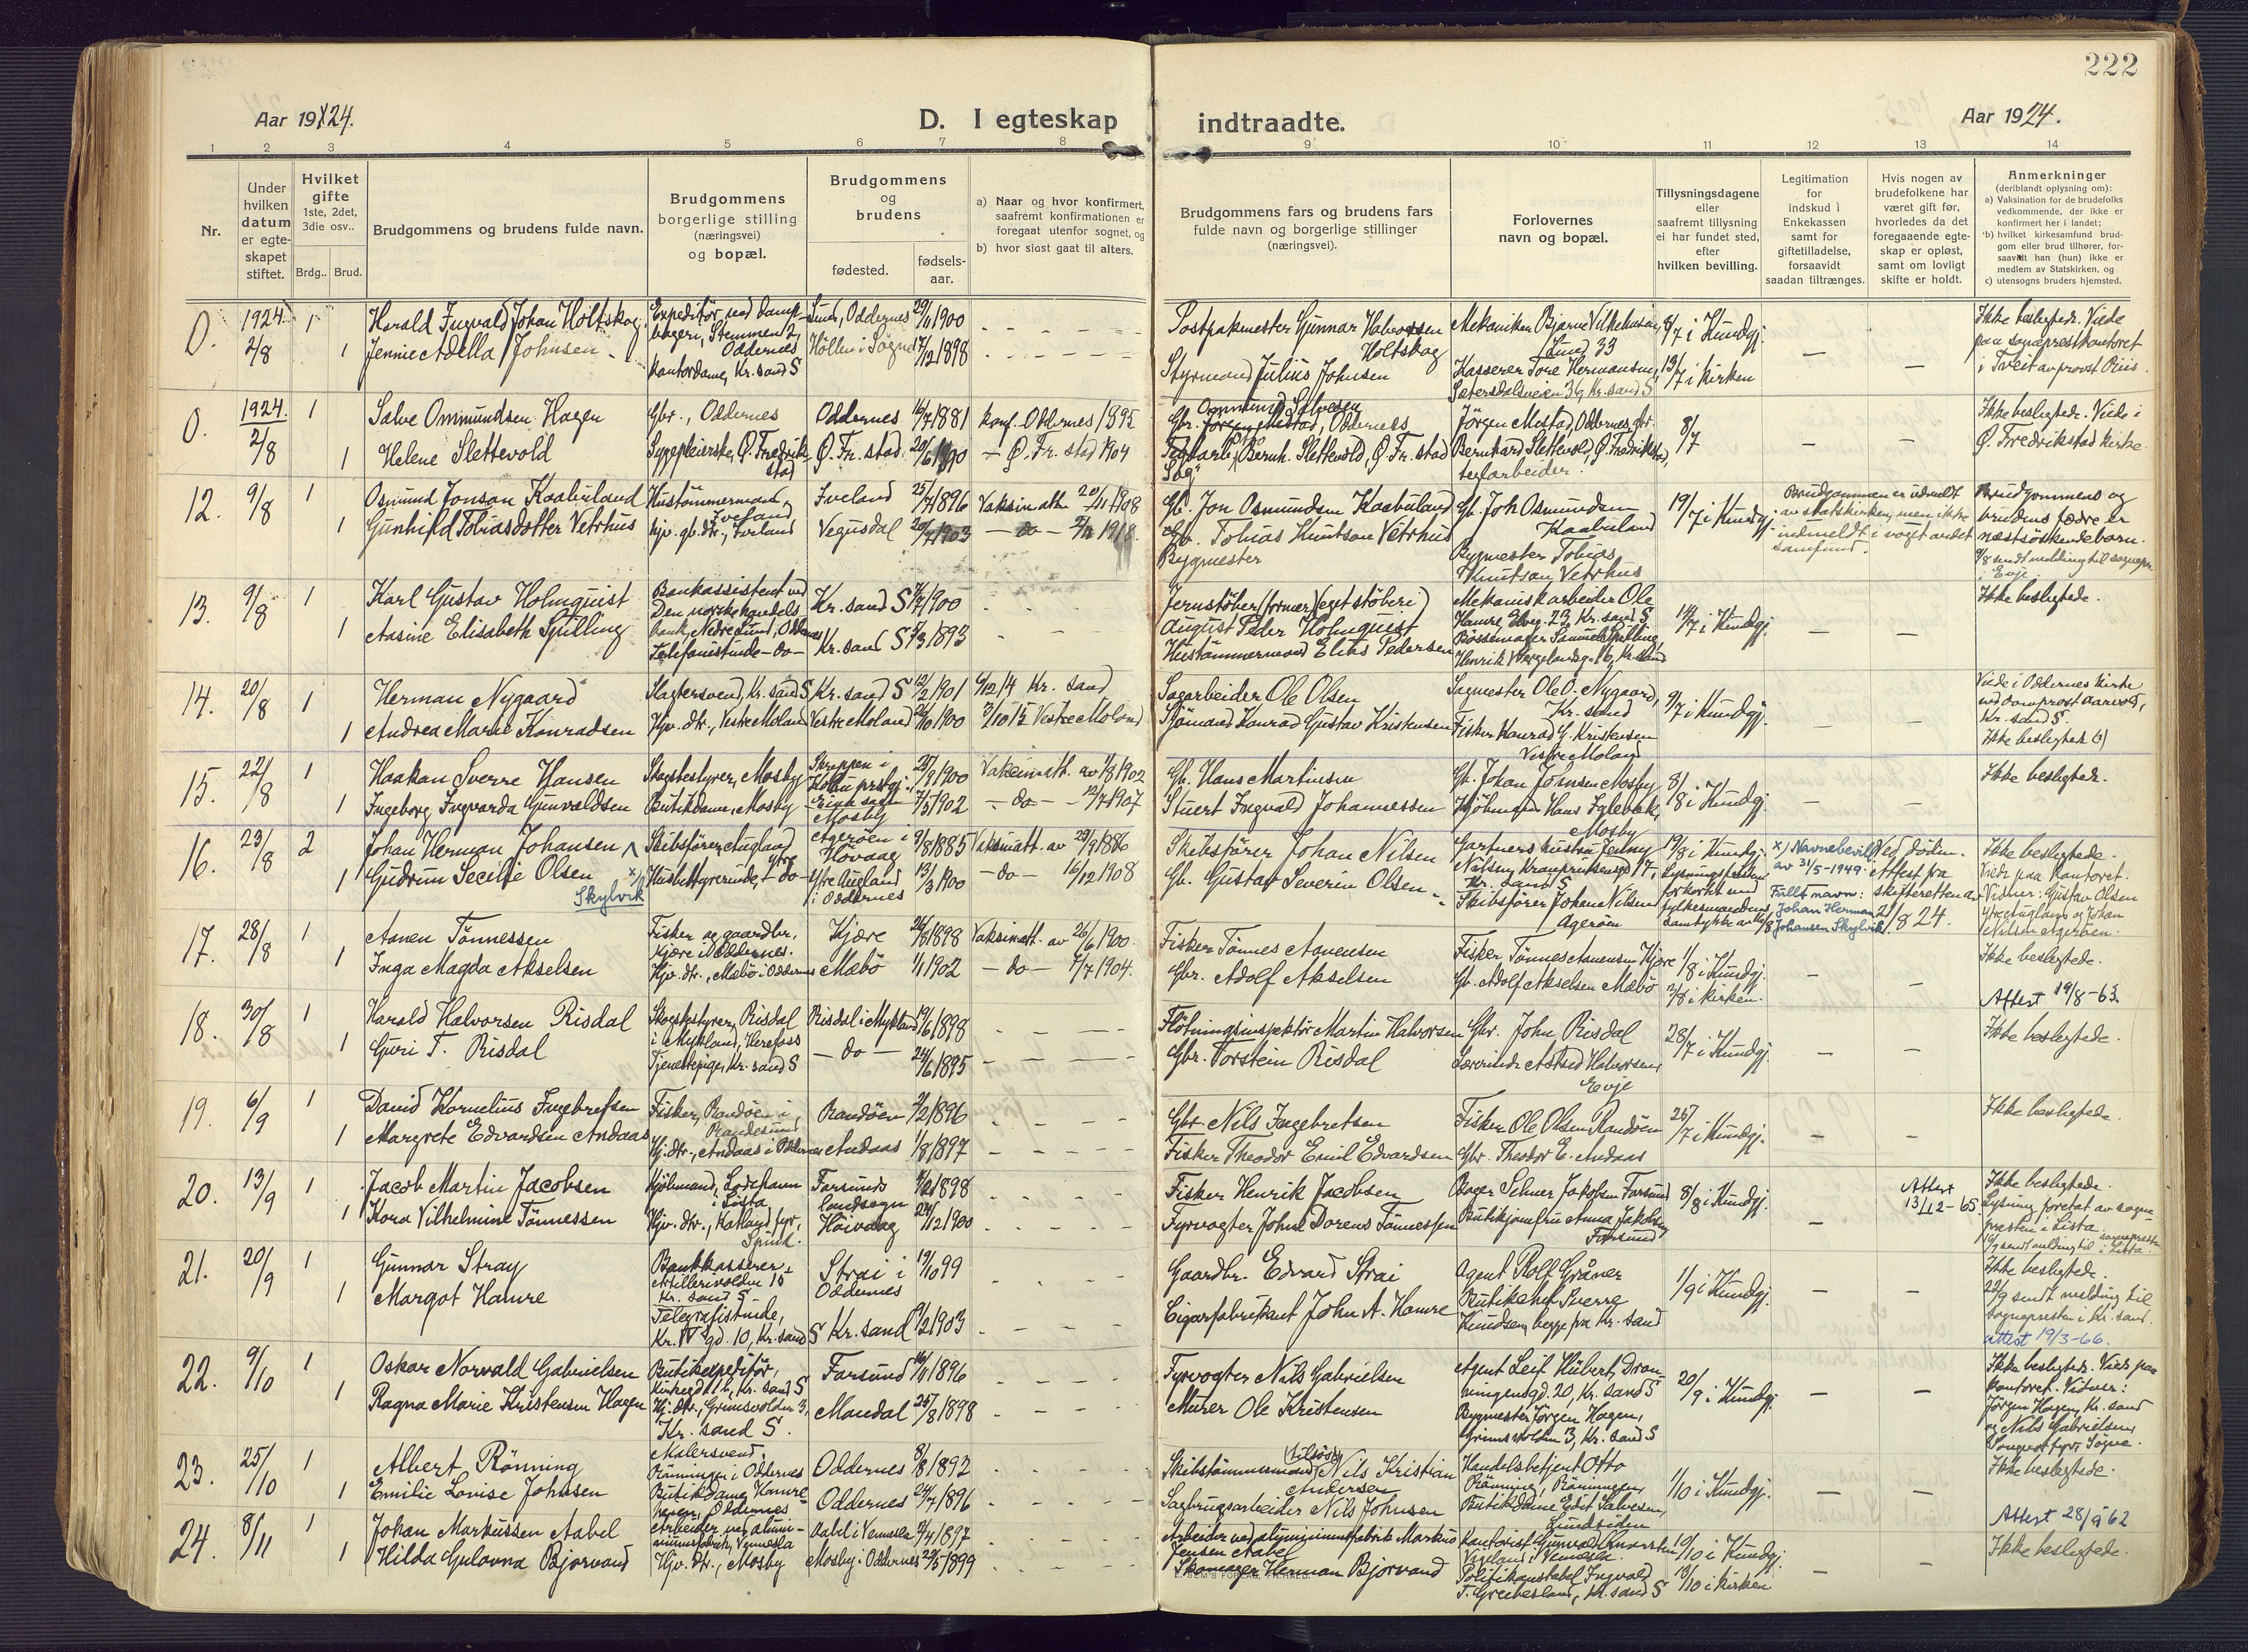 222
Aar 1924.
D. I egteskap
indtraadte.
Aar 1924.
1 2 3 4 5 6 7 8 9 10 11 12 13 14
Nr.
Under hvilken datum er egteskapet stiftet.
Hvilket gifte 1ste, 2det, 3die osv..
Brdg.. Brud.
Brudgommens og brudens fulde navn.
Brudgommens borgerlige stilling (næringsvei) og bopæl.
Brudgommens og brudens
fødested.
fødsels-aar.
a) Naar og hvor konfirmert, saafremt konfirmationen er foregaat utenfor sognet, og
b) hvor sidst gaat til alters.
Brudgommens fars og brudens fars fulde navn og borgerlige stillinger (næringsvei).
Forlovernes navn og bopæl.
Tillysningsdagene eller saafremt tillysning ei har fundet sted, efter hvilken bevilling.
Legitimation for indskud i Enkekassen samt for giftetilladelse, forsaavidt saadan tiltrænges.
Hvis nogen av brudefolkene har været gift før, hvorledes da det foregaaende egteskap er opløst, samt om lovligt skifte er holdt.
Anmerkninger (deriblandt oplysning om):
a) Vaksination for de brudefolks vedkommende, der ikke er konfirmert her i landet;
b) hvilket kirkesamfund brudgom eller brud tilhører, forsaavidt han (hun) ikke er medlem av Statskirken, og
c) utensogns bruders hjemsted.
0. 1924. 2/8 1 Harald Ingvald Johan Holtskog Expeditør ved Lund, Oddernes 29/11 1900
1 Jennie Adella Johnsen Kontordame, Kr.sand S Höllen i Sogne 17/12 1898
Postpakmester Gunnar Halvorsen Holtskog
Styrmand Julius Johnsen
Mekaniker Bjarne Vilhelmsen, Lund 33
Kasserer Tore Hermansen, Setersdalsveien 36, Kr.sand S
8/7 i Kundgj.
13/7 i kirken
Ikke beslegtede. Viede paa sogneprestkontoret i Tveit av provst Riis.
0. 1924. 2/8 1 Salve Ommundsen Hagen Gbr., Oddernes Oddernes 16/7 1881 konf. Oddernes 1895
1 Helene Slettevold Sypleierske, Ø. Fredrikstad Ø. Fr.stad
Ommund Salvesen
Bernh. Slettevold, Ø. Fr.stad
Jörgen Mestad, Oddernes, gbr.
Bernhard Slettevold, Ø. Fredrikstad,
8/7
Ikke beslegtede. Viede i Ø. Fredrikstad kirke
12. 9/8 1 Osmund Jonson Kaabuland Hustömmermand, Iveland Iveland 25/7 1896 Vaksinattn 20/11 1908
1 Gunhild Tobiasdotter Vetrhus Hjv. gb. dtr., Iveland Vegusdal 20/7 1903 - do -
Gb. Jon Osmundsen Kaabuland
Gb. Tobias Knutson Vetrhus Bygmester
Gb. Joh Osmundsen Kaabuland
Bygmester Tobias Knutson Vetrhus
19/7 i Kundgj.
Brudgommen er utmeldt av statskirken, men ikke indmeldt i noget andet samfund.
Brudgommens og brudens fædre er næstsöskendebarn.
9/8 sendt melding til sognepr. i Evje.
13. 9/8 1 Karl Gustav Holmquist Bankassistent ved Den norske handelsbank, Nedre Lund, Oddernes Kr.sand S
1 Aasine Elisabeth Spilling Telefonistinde - do - Kr.sand S 5/3 1893
Jernstöber (former) (eget støberi) August Peder Holmquist
Hustømmermand Elias Pedersen
Mekanisk arbeider Ole Hamre, Elveg. 23, Kr.sand S
Henrik Wergelandsg. 16, Kr.sand
14/7 i Kundgj.
Ikke beslegtede.
14. 20/8 1 Herman Nygaard Slagtersvend, Kr.sand S Kr.sand S 12/2 1901 4/12 14 Kr. sand
1 Andrea Marie Konradsen Hjv. dtr., Vestre Moland Vestre Moland 26/10 1900 3/10 15 Vestre Moland
Sagarbeider Ole Olsen
Sjömand Konrad Gustav Kristensen
Sagmester Ole O. Nygaard, Kr.sand
Fisker Konrad G. Kristensen Vestre Moland
9/7 i Kundgj.
Viede i Oddernes kirke ved domprost Aarvold, Kr.sand S.
Ikke beslegtede
15. 22/8 1 Haakan Sverre Hansen Skogbestyrer, Mosby 29/9 1900 Vaksinatt. av 1/8 1902
1 Ingeborg Ingvarda Gunvaldsen Butikdame, Mosby Mosby 7/5 1902 - do - 12/7 1907
Gb. Hans Martinsen
Stuert Ingvald Johannessen
Gb. Johan Johnsen Mosby
Kjöbmand Hans Mosby
8/8 i Kundgj.
Ikke beslegtede.
16. 23/8 2 Johan Herman Johansen Skibsfører, Augland Agerøen i Høvaag 9/8 1885 Vaksinatt. av 29/9 1886
1 Gudrun Secilie Olsen x) Skylvik Husbestyrerinde, - do - Ytre Augland i Oddernes 13/3 1900 - do - 16/12 1908
Skibsfører Johan Nilsen
Gb. Gustav Severin Olsen
Gartners hustru Jenny Nilsen, Kr.sand S
Skibsfører Johan Nilsen Agerøen
19/8 i Kundgj.
x) Navnebevill. av 31/5-1949. Fullt navn: Johan Herman Johansen Skylvik
Ved døden. Attest fra skifteretten av 21/8 24.
Ikke beslegtede. Viede paa kontoret. Vidner: Gustav Olsen Ytre Augland og Johan Nilsen Agerøen.
17. 28/8 1 Aanen Tönnessen Fisker og gaardbr., Kjøre i Oddernes. Kjøre 26/8 1898 Vaksinatt. av 26/6 1900.
1 Inga Magda Akselsen Hjv. dtr., Mæbö i Oddernes Mæbö 1/1 1902 - do - 7/7 1904.
Fisker Tönnes Aanensen
Gbr. Adolf Akselsen
Fisker Tönnes Aanensen Kjøre
Gb. Adolf Akselsen Mæbö
1/8 i Kundgj.
3/8 i kirken.
Ikke beslegtede.
Attest 19/8-63
18. 30/8 1 Harald Halvorsen Risdal Skogbestyrer, Risdal i Mykland, Herefoss Risdal i Mykland 19/6 1898
1 Guri T. Risdal Tjenestepige, Kr.sand S - do - 24/6 1895
Flötningsinspektör Martin Halvorsen
Gbr. Torstein Risdal
Gbr. John Risdal
Lærerinde Astrid Halvorsen, Evje
28/7 i Kundgj.
Ikke beslegtede.
19. 6/9 1 David Kornelius Ingebretsen Fisker, Randöen i Randesund Randöen 2/2 1896
1 Margrete Edvardsen Andaas Hj. dtr., Andaas i Oddernes Andaas 1/8 1897
Gbr. Nils Ingebretsen
Fisker Theodor Emil Edvardsen
Fisker Ole Olsen Randöen
Gbr. Theodor E. Andaas
26/7 i Kundgj.
Ikke beslegtede.
20. 13/9 1 Jacob Martin Jacobsen Kjöbmand, Lodshavn i Lista Farsunds landsogn 4/2 1898
1 Kora Vilhelmine Tönnessen Hjv. dtr., Katland fyr, Spind. Høivaag 24/12 1900
Fisker Henrik Jacobsen
Fyrvogter Johan Dorens Tönnessen
Bager Selmer Jakobsen Farsund
Butikjomfru Anna Jakobsen Farsund
8/8 i Kundgj.
Attest 13/12-65.
Ikke beslegtede. Lysning foretat av sognepresten i Lista.
16/9 sendt melding til sognepresten i Lista.
21. 20/9 1 Gunnar Stray Bankkasserer, Artillerivolden 15 Kr.sand S Strai i Oddernes 19/10 99
1 Margot Hamre Telegrafistinde, Kr. IV's gd. 10, Kr.sand S Kr.sand 9/2 1903
Gaardbr. Edvard Strai
Cigarfabrikant John A. Hamre
Agent Rolf Gråner
Butikchef Sverre Knudsen, begge fra Kr.sand
1/9 i Kundgj.
Ikke beslegtede.
22/9 sendt melding til sognepresten i Kr.sand.
attest 19/3-66.
22. 9/10 1 Oskar Norvald Gabrielsen Butikexpeditör, Kr.sand S Farsund 16/11 1896
1 Ragna Marie Kristensen Hagen Hj. dtr., Grimsvolden 3, Kr.sand S. Mandal 25/8 1898
Fyrvogter Nils Gabrielsen
Murer Ole Kristensen
Agent Leif Hübert, Dronningensgd. 20, Kr.sand S
Bygmester Jörgen Hagen, Grimsvolden 3, Kr.sand S
20/9 i Kundgj.
Ikke beslegtede. Viede paa kontoret. Vidner: Jörgen Hagen, Kr.sand og Nils Gabrielsen, Songvor fyr, Søgne.
23. 25/10 1 Albert Rönning Malersvend, Rönningen i Oddernes Oddernes 8/8 1892
1 Emilie Louise Johnsen Butikdame, Oddernes Oddernes 24/7 1896
Skibstömmermand Nils Kristian Andersen
Sagbrugsarbeider Nils Johnsen
Handelsbetjent Otto Rönning, Rönningen,
Butikdame Edit Salvesen, Lundsiden
1/10 i Kundgj.
Ikke beslegtede.
Attest 28/9 62
24. 8/11 1 Johan Markussen Aabel Arbeider ved aluminiumsfabrik, Vennesla Aabel i Vennesla 2/4 1897
1 Hilda Gulovna Bjorvand Hjv. dtr., Mosby Mosby i Oddernes 24/5 1899
Arbeider ved aluminiumfabrik Markus Jensen Aabel
Skomager Herman Bjorvand
Kontorist Gunvald Knarsten Vigeland i Vennesla.
Politikonstabel Ingvald T. Greibesland, Kr.sand S
10/10 i Kundgj.
19/10 i kirken
Ikke beslegtede.